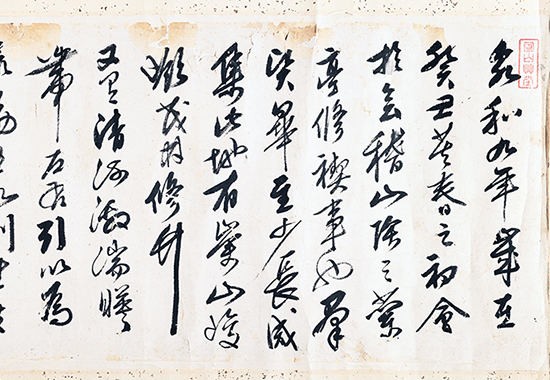 永和九年歲在
癸丑暮春之初會
於會稽山陰之蘭
亭脩禊事也羣
賢畢至少長咸
集此地有崇山峻
嶺茂林脩竹
又有清流激湍暎
帶左右引以為